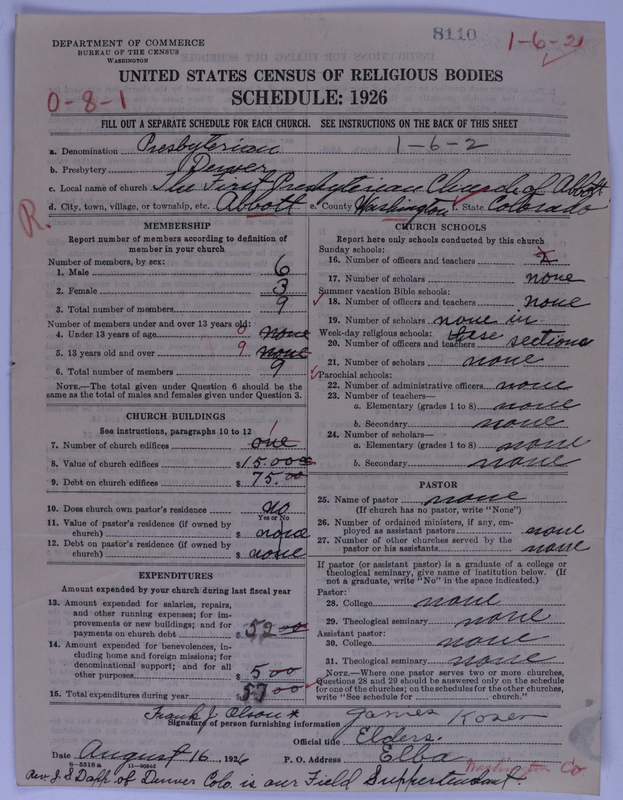 8110
1-6-2
DEPARTMENT OF COMMERCE
BUREAU OF THE CENSUS
WASHINGTON
UNITED STATES CENSUS OF RELIGIOUS BODIES
SCHEDULE: 1926
0-8-1
FILL OUT A SEPARATE SCHEDULE FOR EACH CHURCH. SEE INSTRUCTIONS ON THE BACK OF THIS SHEET
a. Denomination Presbyterian 1-6-2
b. Presbytery Denver
c. Local name of church The First Presbyterian Church of Abbott
d. City, town, village, or township, etc. Abbott e. County Washington f. State Colorado
R.
MEMBERSHIP
Report number of members according to definition of
member in your church
Number of members, by sex:
1. Male 6
2. Female 3
3. Total number of members 9
Number of members under and over 13 years old:
4. Under 13 years of age 0 none
5. 13 years old and over 9 none
6. Total number of members 9
NOTE.—The total given under Question 6 should be
same as the total of males and females given under Question 3.
CHURCH BUILDINGS
See instructions, paragraphs 10 to 12
7. Number of church edifices one 1
8. Value of church edifices $1500
9. Debt on church edifices $75.00
10. Does church own pastor's residence no
Yes or No
11. Value of pastor's residence (if owned by
church) $ none
12. Debt on pastor's residence (if owned by
church) $ none
EXPENDITURES
Amount expended by your church during last fiscal year
13. Amount expended for salaries, repairs,
and other running expenses; for im-
provements or new buildings; and for
payments on church debt $ 52
14. Amount expended for benevolences, in-
cluding home and foreign missions; for
denominational support; and for all
other purposes 5 00
15. Total expenditures during year $ 57 00
CHURCH SCHOOLS
Report here only schools conducted by this church
Sunday schools:
16. Number of officers and teachers 2
17. Number of scholars none
Summer vacation Bible schools:
18. Number of officers and teachers none
19. Number of scholars none in
Week-day religious schools: these
20. Number of officers and teachers sections
21. Number of scholars none
Parochial schools:
22. Number of administrative officers none
23. Number of teachers—
a. Elementary (grades 1 to 8) none
b. Secondary none
24. Number of scholars—
a. Elementary (grades 1 to 8) none
b. Secondary none
PASTOR
25. Name of pastor none
(If church has no pastor, write "None")
26. Number of ordained ministers, if any, em-
ployed as assistant pastors none
27. Number of other churches served by the
pastor or his assistants none
If pastor (or assistant pastor) is a graduate of a college or
theological seminary, give name of institution below. (If
not a graduate, write "No" in the space indicated.)
Pastor:
28. College none
29. Theological seminary none
Assistant pastor:
30. College none
31. Theological seminary none
NOTE.—Where one pastor serves two or more churches,
Questions 28 and 29 should be answered only on the schedule
for one of the churches; on the schedules for the other churches,
write "See schedule for church."
Frank J. Olson * James Koser
Signature of person furnishing information
Official title Elders.
Date August 16, 1926 P. O. Address Elba Washington Co.
8-5518a
Rev. J. S. Dapp of Denver Colo. is our Field Suppertendent.